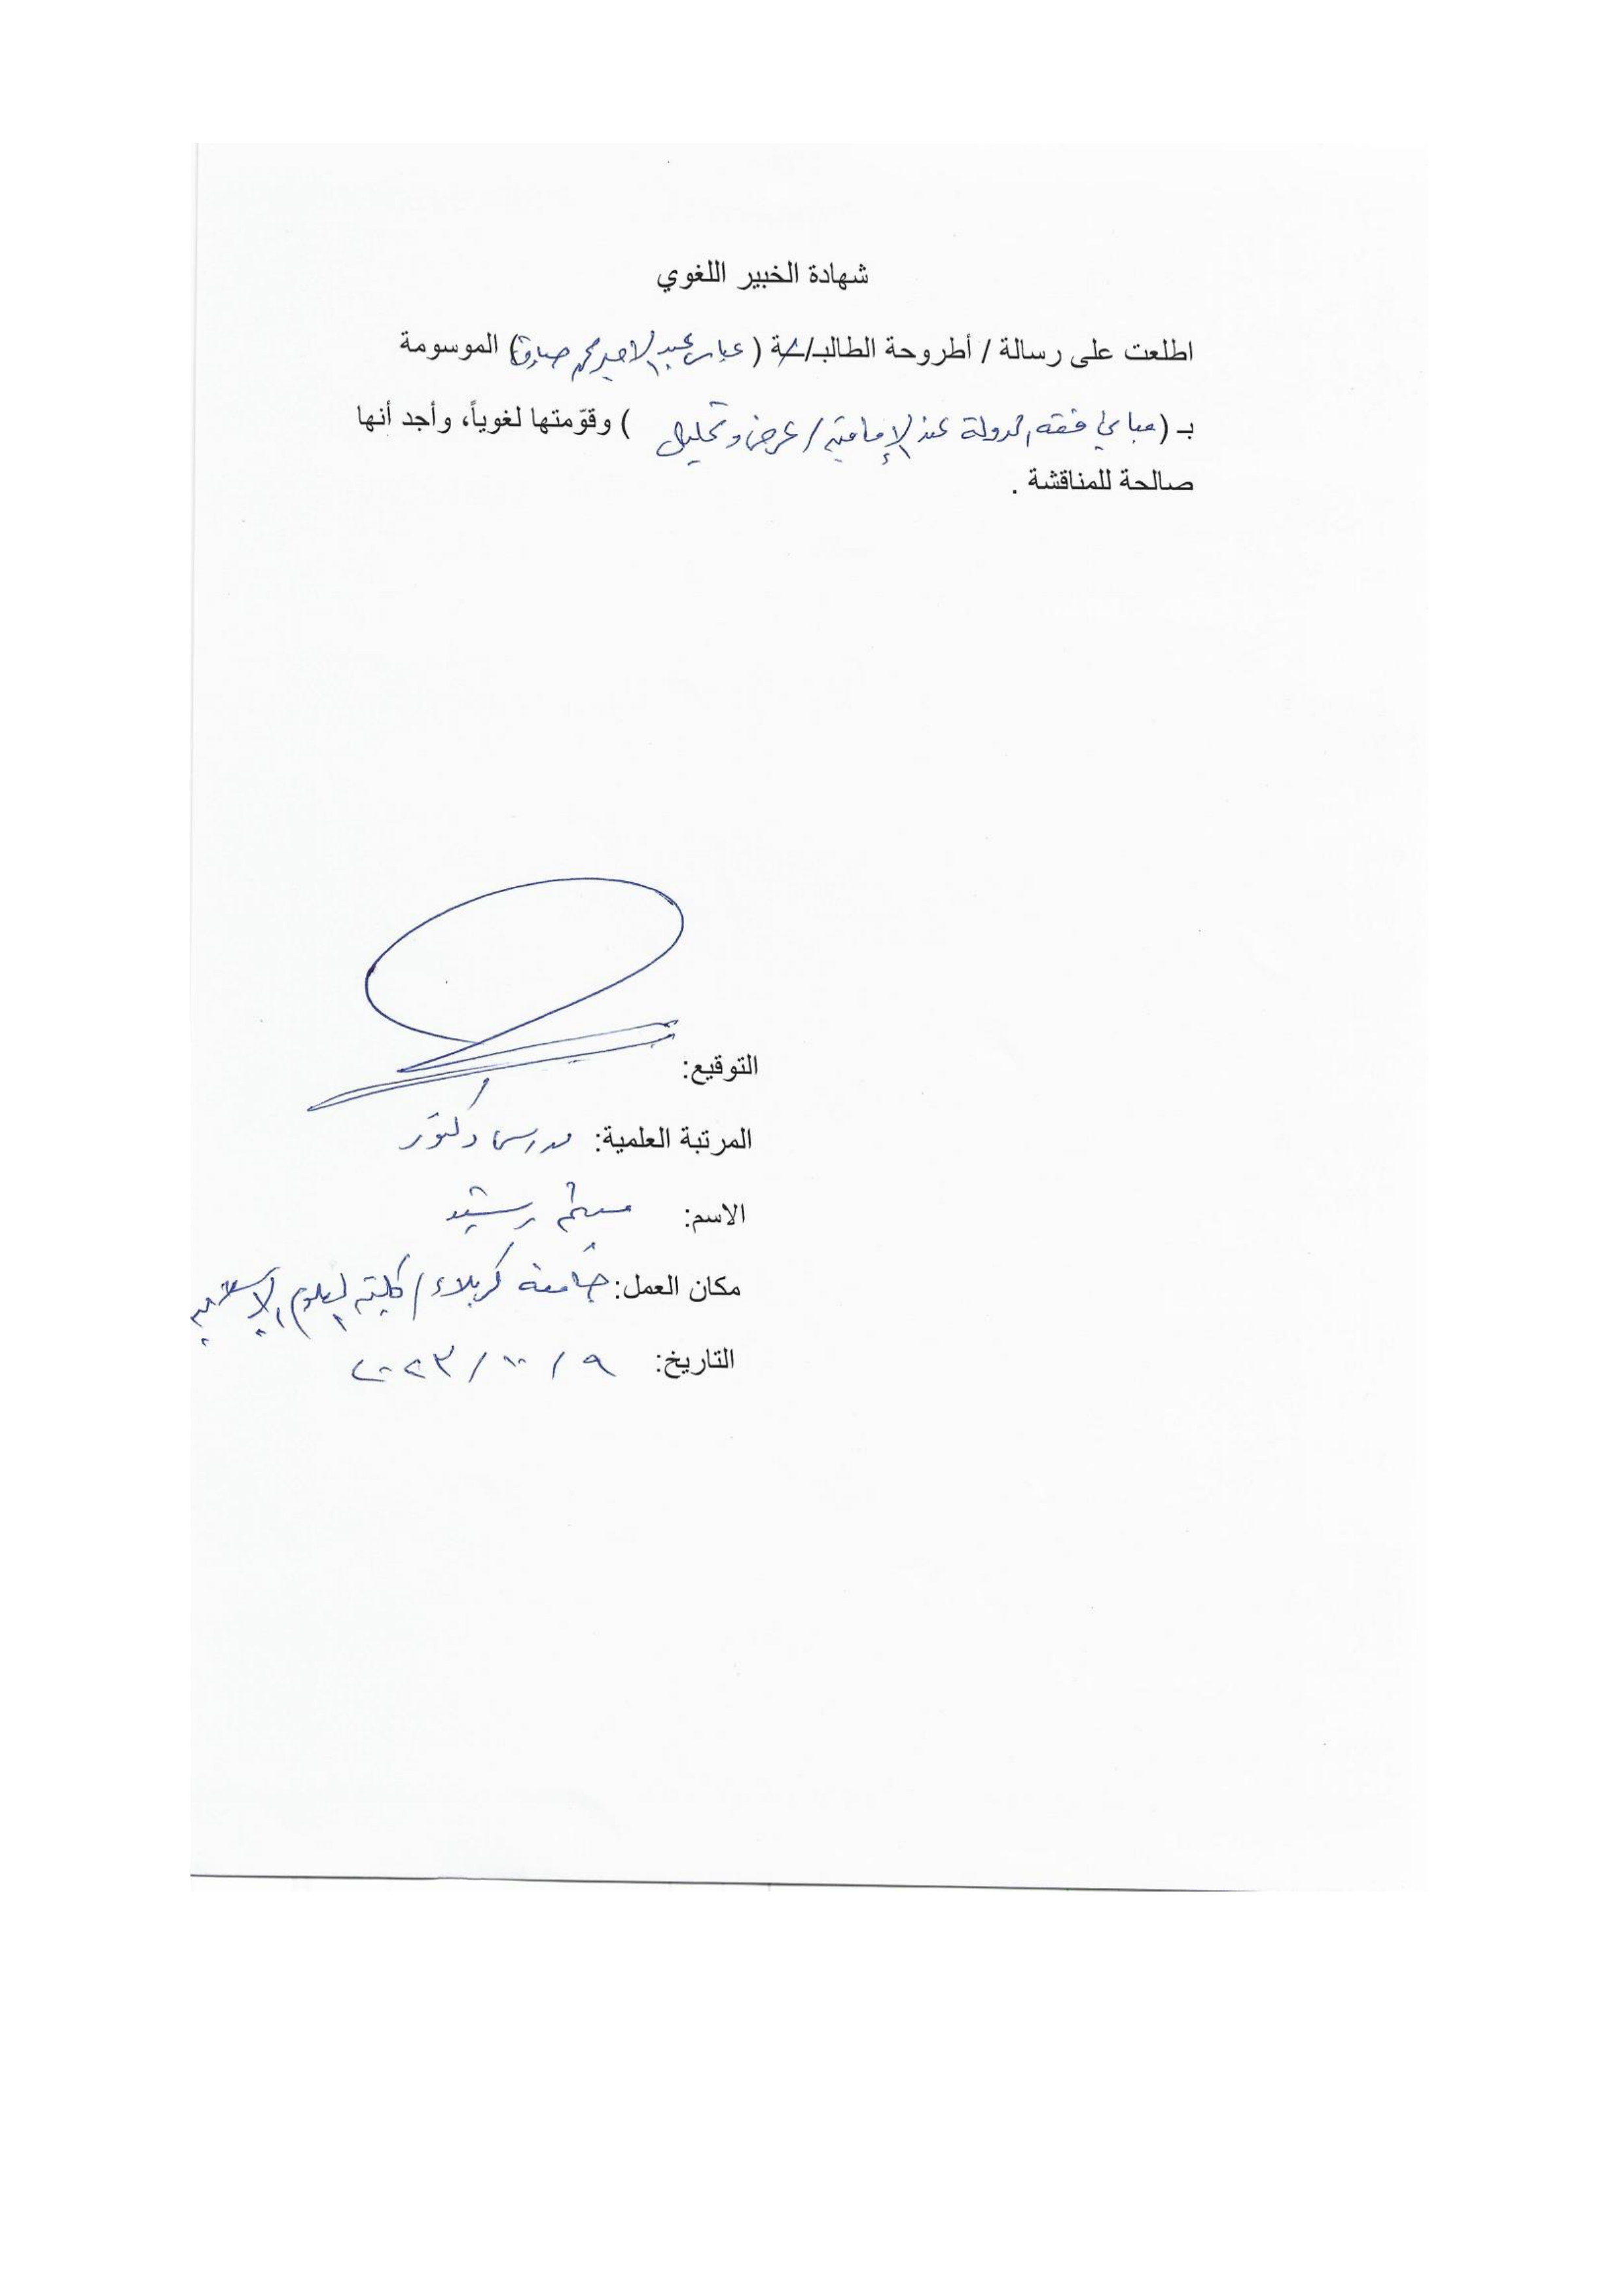 شهادة الخبير اللغوي
اطلعت على رسالة / أطروحة الطالب/ـة (عباس عبد الامير محمد صادق) الموسومة
بـ (مباني فقه الدولة عند الإمامية / عرض وتحليل ) وقوّمتها لغوياً، وأجد أنها
صالحة للمناقشة .
التوقيع:
المرتبة العلمية: مدرس دكتور
الاسم: ميثم رشيد
مكان العمل: جامعة كربلاء / كلية العلوم الإسلامية
التاريخ: ٩ / ١٠ / ٢٠٢٣